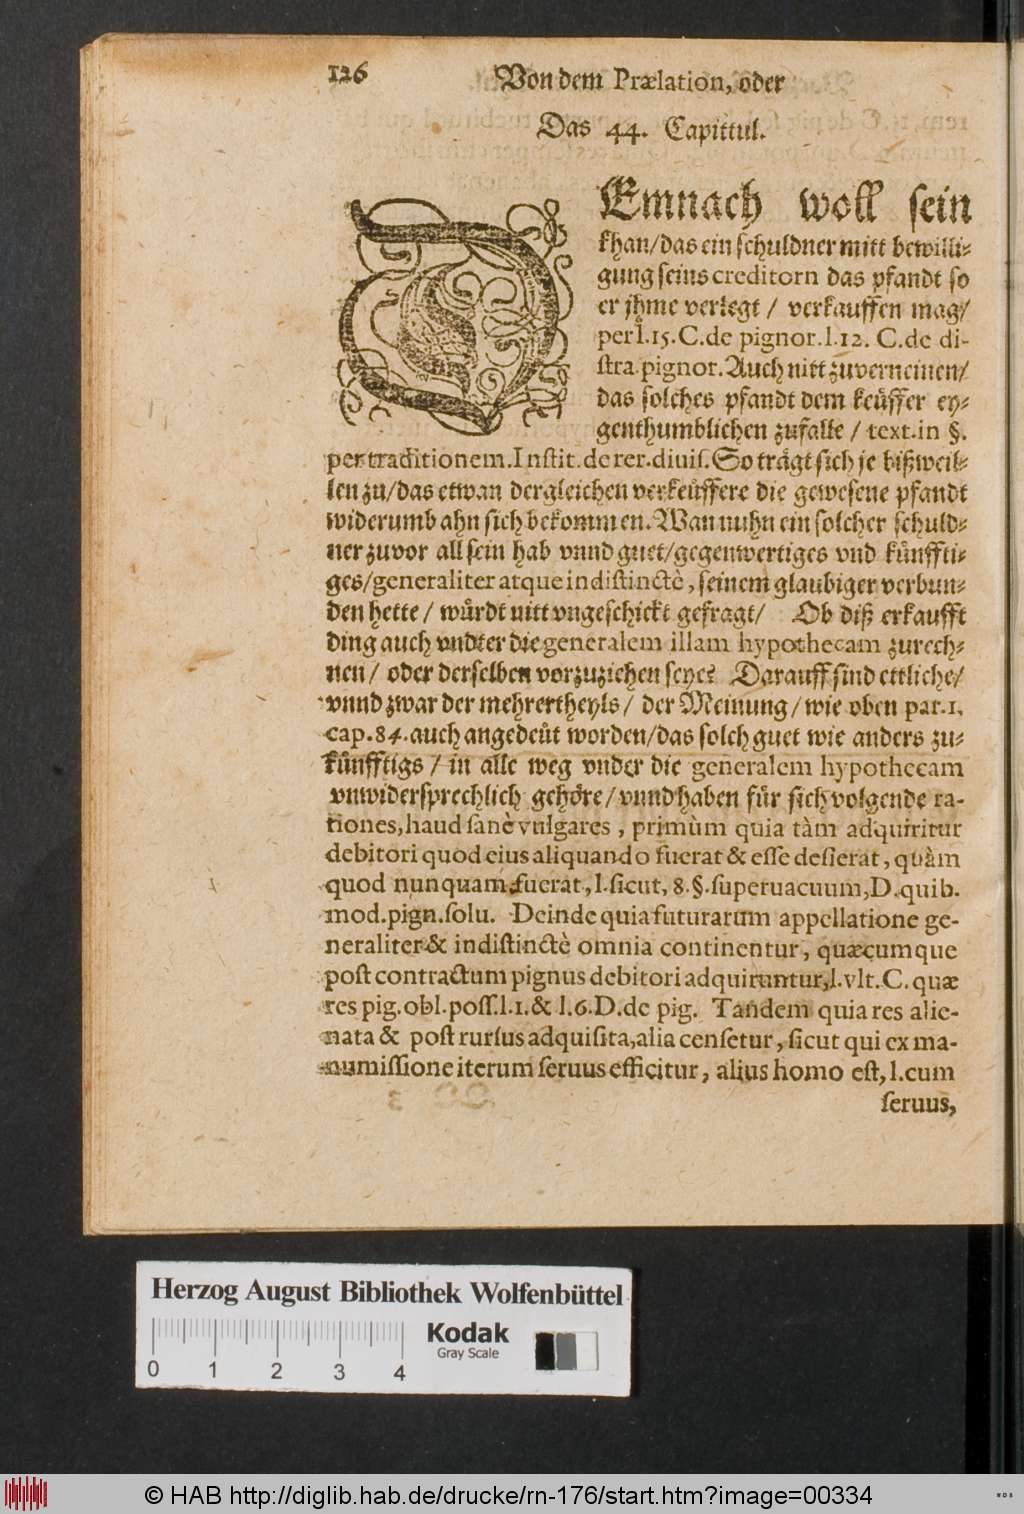 126 Von dem Prælation, oder
Das 44. Capittul.
DEmnach woll sein
khan/das ein schuldner mitt bewilli-
gung seins creditorn das pfandt so
er jhme verlegt / verkauffen mag/
per l.15. C. de pignor. l.12. C. de di-
stra. pignor. Auch nitt zuverneinen/
das solches pfandt dem keüffer ey-
genthumblichen zufalle / text. in §.
per traditionem. Instit. de rer. diuis. So trägt sich je bißweil-
len zu/das etwan dergleichen verkeüffere die gewesene pfandt
widerumb ahn sich bekommen. Wan nuhn ein solcher schuld-
ner zuvor all sein hab vnnd guet/gegenwertiges vnd künffti-
ges/generaliter atque indistinctè, seinem glaubiger verbun-
den hette / würdt nitt vngeschickt gefragt/ Ob diß erkaufft
ding auch vndter die generalem illam hypothecam zurech-
nen / oder derselben vorzuziehen seye? Darauff sind ettliche/
vnnd zwar der mehrertheyls / der Meinung / wie oben par. 1.
cap. 84. auch angedeüt worden/das solch guet wie anders zu-
künfftigs / in alle weg vnder die generalem hypothecam
vnwidersprechlich gehöre / vnnd haben für sich volgende ra-
tiones, haud sanè vulgares, primùm quia tàm adquiritur
debitori quod eius aliquando fuerat & esse desierat, quàm
quod nunquam fuerat, l. sicut, 8. §. superuacuum, D. quib.
mod. pign. solu. Deinde quia futurarum appellatione ge-
neraliter & indistinctè omnia continentur, quæcumque
post contractum pignus debitori adquiruntur, l. vlt. C. quæ
res pig. obl. poss. l.1. & l.6. D. de pig. Tandem quia res alie-
nata & post rursus adquisita, alia censetur, sicut qui ex ma-
numissione iterum seruus efficitur, alius homo est, l. cum
seruus,
Herzog August Bibliothek Wolfenbüttel
Kodak
Gray Scale
0 1 2 3 4
© HAB http://diglib.hab.de/drucke/rn-176/start.htm?image=00334